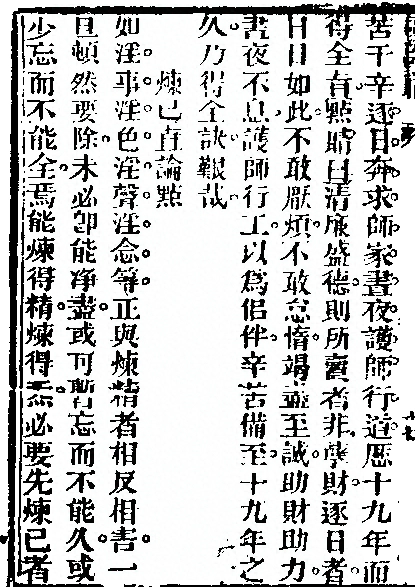 苦千辛逐日奔求師家晝夜護師行道歷十九年而
得全有點賭曰清廉盛德則所賣者非孽財逐日者
日日如此不敢厭煩不敢怠惰竭盡至誠助財助力
晝夜不息護師行工以為侶伴辛苦備至十九年之
久乃得全訣艱哉
煉己直論點
如淫事淫色淫聲淫念等正與煉精者相反相害一
旦頓然要除未必卽能淨盡或可暫忘而不能久或
少忘而不能全焉能煉得精煉得炁必要先煉己者